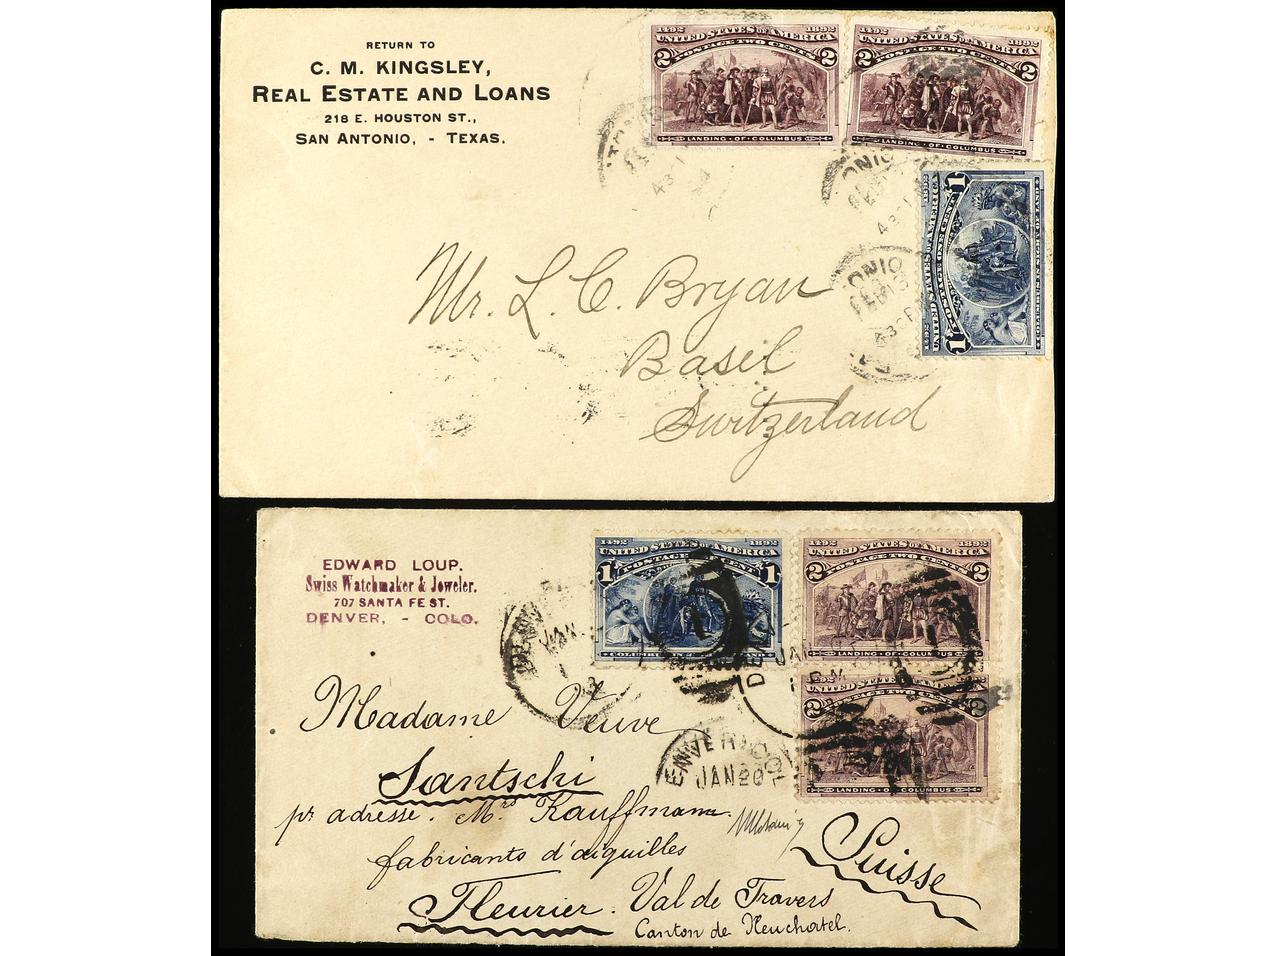 RETURN TO
C. M. KINGSLEY,
REAL ESTATE AND LOANS
218 E. HOUSTON ST.,
SAN ANTONIO, - TEXAS.
1492 1892
UNITED STATES OF AMERICA
POSTAGE TWO CENTS
2 2
LANDING · OF · COLUMBUS
1492 1892
UNITED STATES OF AMERICA
POSTAGE TWO CENTS
2 2
LANDING · OF · COLUMBUS
1492
UNITED STATES OF AMERICA
POSTAGE ONE CENT
1 1
ONIO
ONIO
Mr. L. C. Bryan
Basel
Switzerland
EDWARD LOUP.
Swiss Watchmaker & Jeweler.
707 SANTA FE ST.
DENVER, - COLO.
1492 1892
UNITED STATES OF AMERICA
1 1
1492 1892
UNITED STATES OF AMERICA
POSTAGE TWO CENTS
2 2
LANDING · OF · COLUMBUS
UNITED STATES OF AMERICA
POSTAGE TWO CENTS
2 2
LANDING · OF · COLUMBUS
JAN
JAN
JAN 20
Madame Veuve
Santschi
pr adresse. Mrs Kauffmann
fabricants d'aiguilles
Suisse
Fleurier. Val de Travers
Canton de Neuchatel.